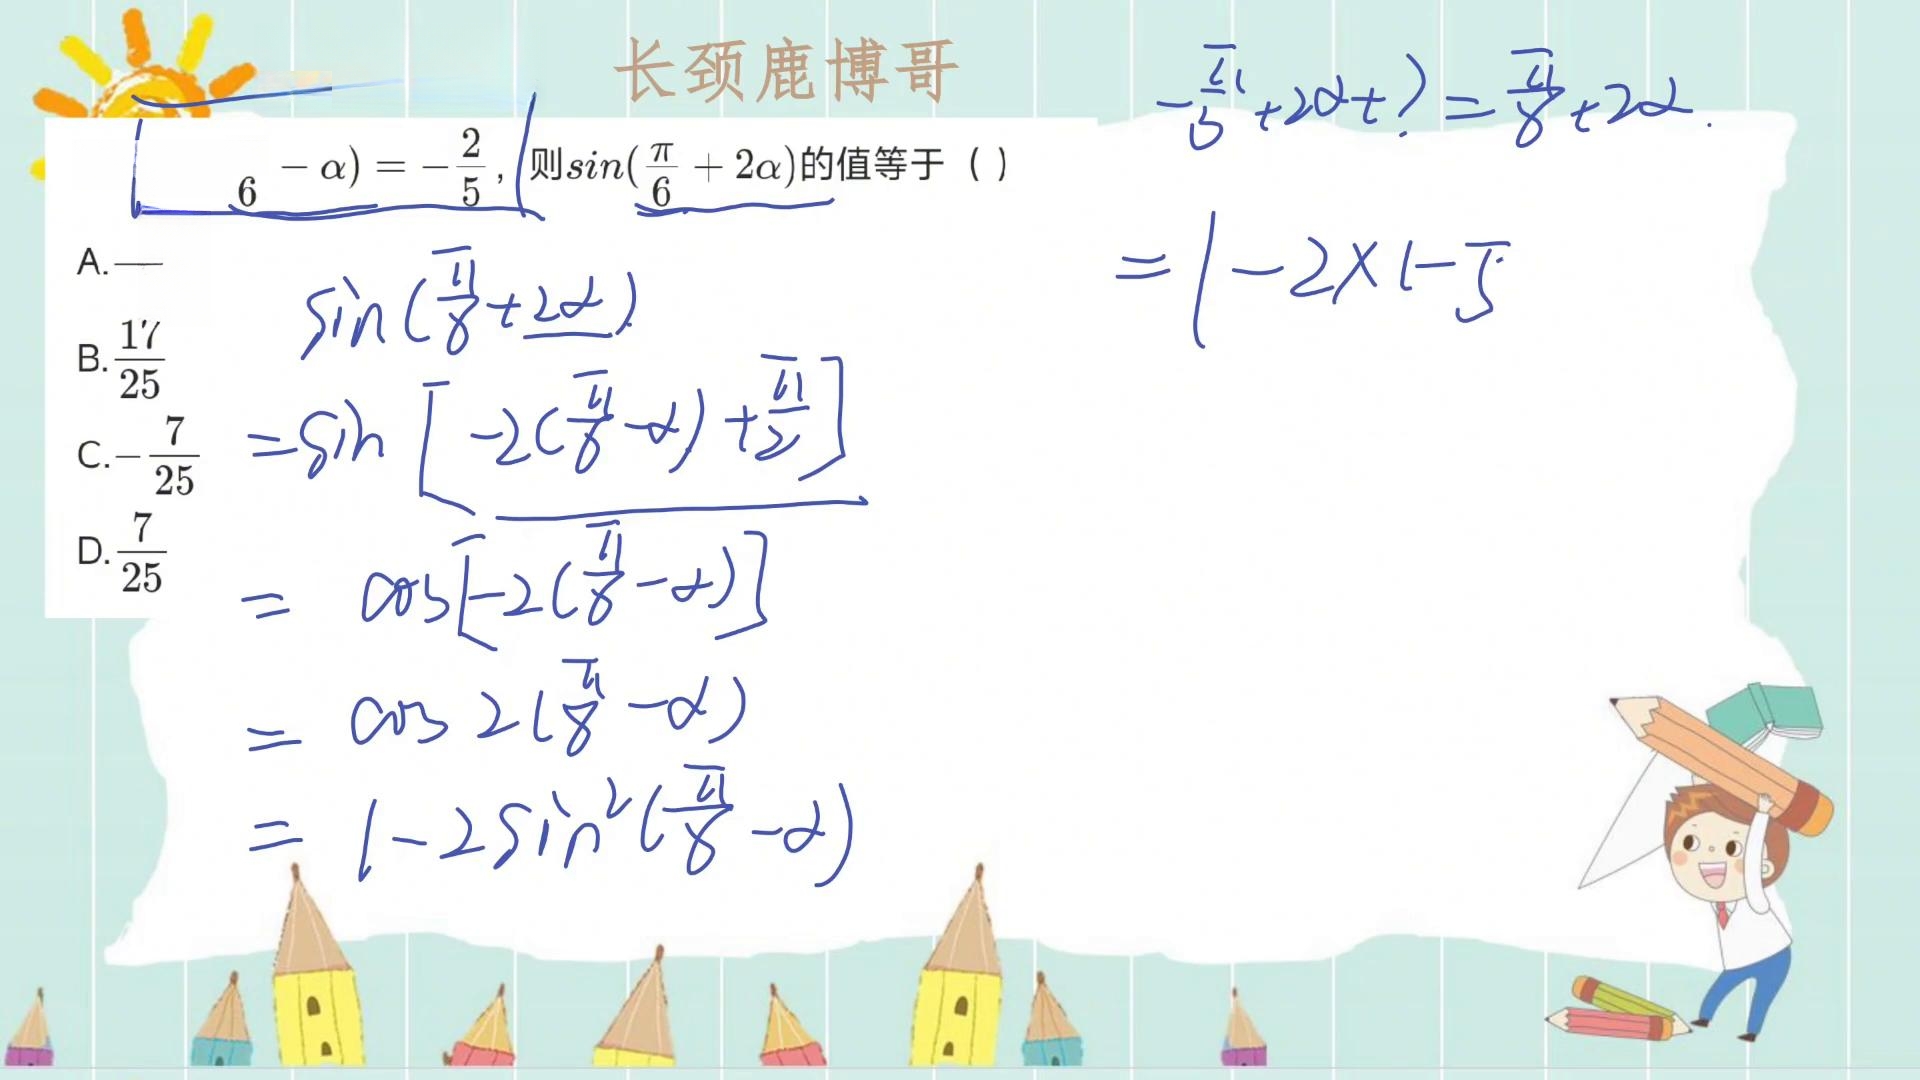 长颈鹿博哥
6 - α) = -2/5，则sin(π/6 + 2α)的值等于（ ）
A.—
B.17/25
C.-7/25
D.7/25
sin(π/6+2α)
=sin[-2(π/6-α)+π/2]
= cos[-2(π/6-α)]
= cos 2(π/6-α)
= 1-2sin²(π/6-α)
-π/3+2α+?=π/6+2α.
=1-2×(-